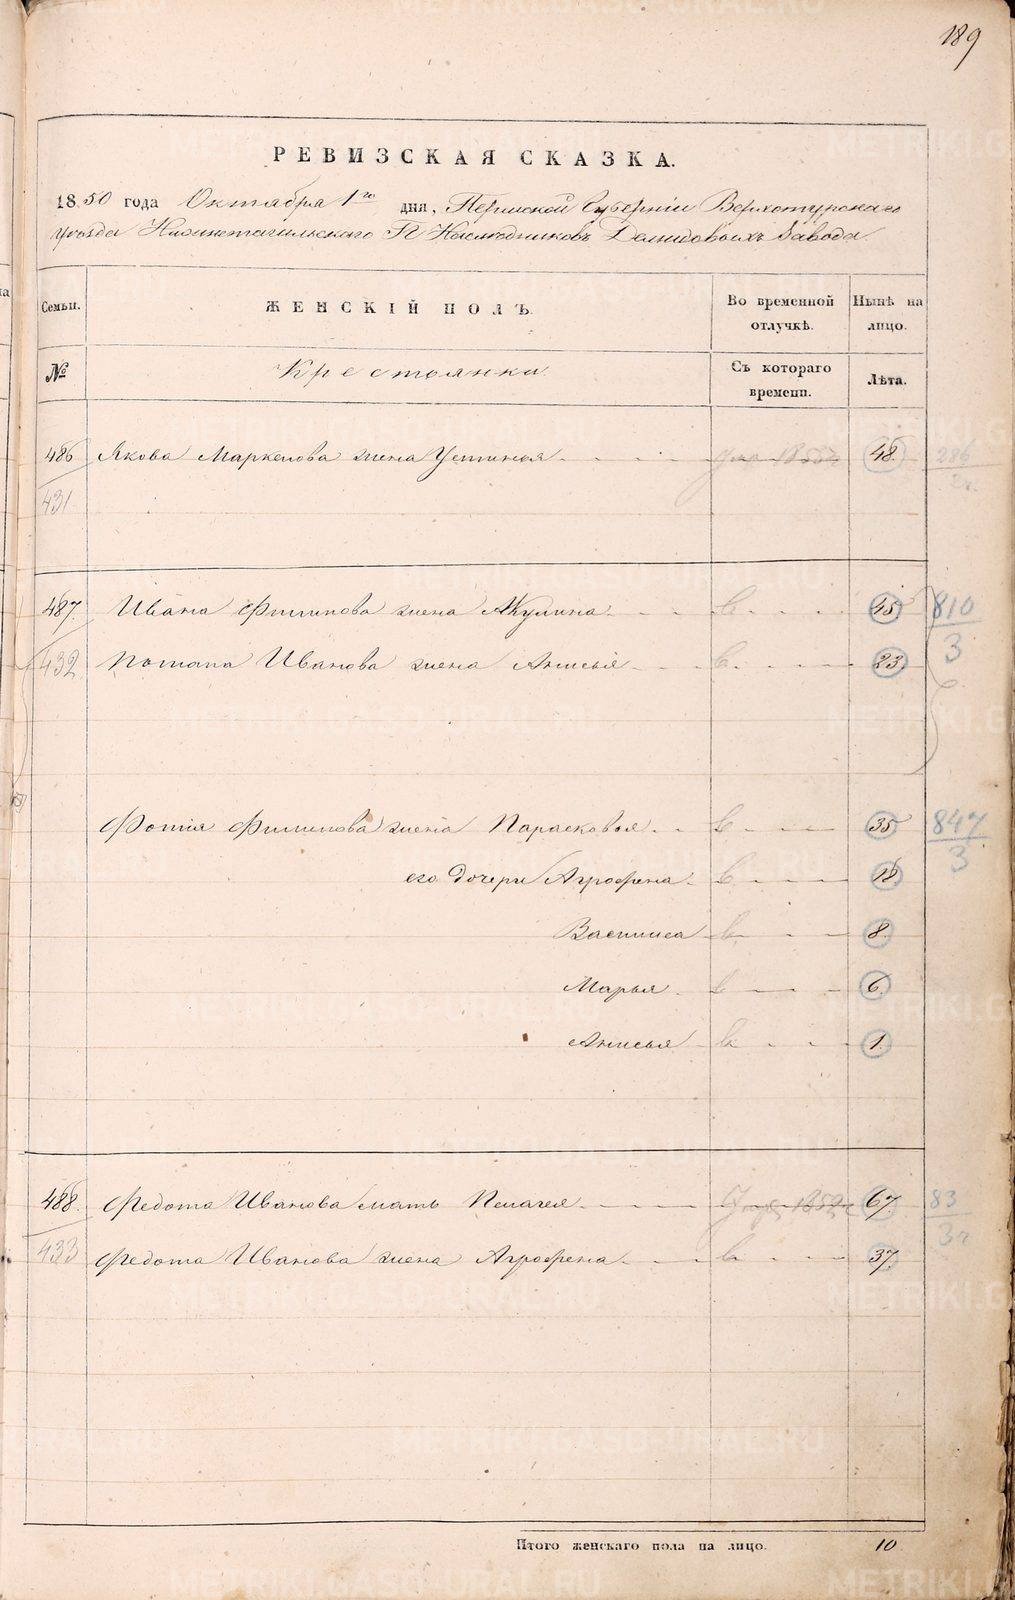 189
РЕВИЗСКАЯ СКАЗКА.
1850 года Октября 1го дня, Пермской Губерніи Верхотурскаго
уѣзда Нижнетагильскаго Гг Наслѣдниковъ Демидовыхъ Завода
Семьи. ЖЕНСКІЙ ПОЛЪ. Во временной отлучкѣ. Нынѣ на лицо.
№ Крестьянки Съ котораго времени. Лѣта.
486 Якова Маркелова жена Устинья 48.
431
487. Ивана Филипова жена Акулина 45 810
432 Потапа Иванова жена Анисья 23. 3
Фотія Филипова жена Парасковья 35 847
его дочери Агрофена 18 3
Василиса 8.
Марья 6.
Анисья 1.
488. Федота Иванова мать Пелагея 67. 83
433 Федота Иванова жена Агрофена 37.
Итого женскаго пола на лицо. 10
METRIKI.GASO-URAL.RU